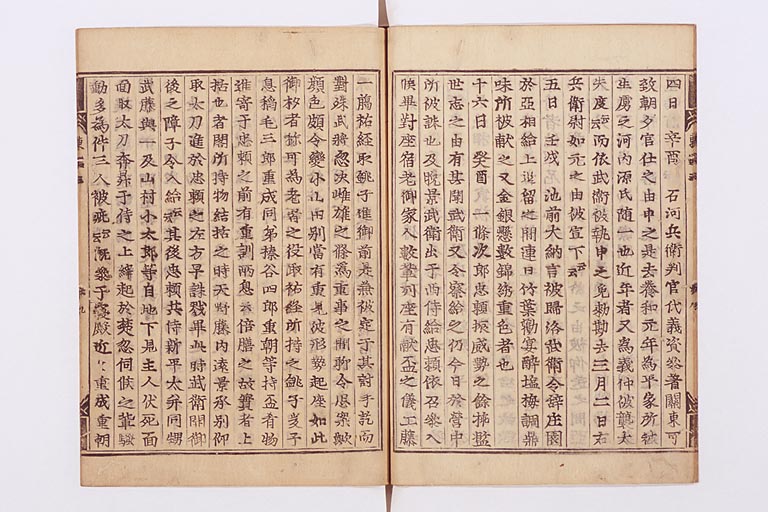 四日 辛酉 石河兵衛判官代義資參著關東可
致朝夕官仕之由申之是去養和元年為平家所被
生虜之河内源氏随一也近年者又為義仲被襲太
失度云云而依武衛被執申之免勅勘去三月二日右
兵衛尉如元之由被宣下云云
五日 壬戌 池前大納言被歸洛武衛令辞庄園
於亞相給上逗留之間連日竹葉勧宴酔塩梅調鼎
味所被献之又金銀懸數錦繍重色者也
十六日 癸酉 一條次郎忠頼振威勢之餘挿濫
世志之由有其聞武衛又令察給之仍今日於營中
所被誅也及晩景武衛出于西侍給忠頼依召參入
候畢對座宿老御家人數輩列座有献盃之儀工藤
一臈祐経取銚子進御前是兼被定于其討手訖而
對殊武將忽決雌雄之條為重事之間聊令思案歟
顔色頗令變小山田別當有重見彼形勢起座如此
御杓者称可為老者之役取祐経所持之銚子爰子
息稲毛三郎重成同弟榛谷四郎重朝等持盃肴物
進寄于忠頼之前有重訓兩息云倍膳之故實者上
括也者閣所持物結括之時天野藤内遠景承別仰
取太刀進於忠頼之左方早誅戮畢此時武衛開御
後之障子令入給云云其後忠頼共侍新平太并同甥
武藤與一及山村小太郎等自地下見主人伏死面
面取太刀奔昇于侍之上縡起於楚忽伺候之輩騒
動多為件三人被疵云云既參于寢殿近〻重成重朝